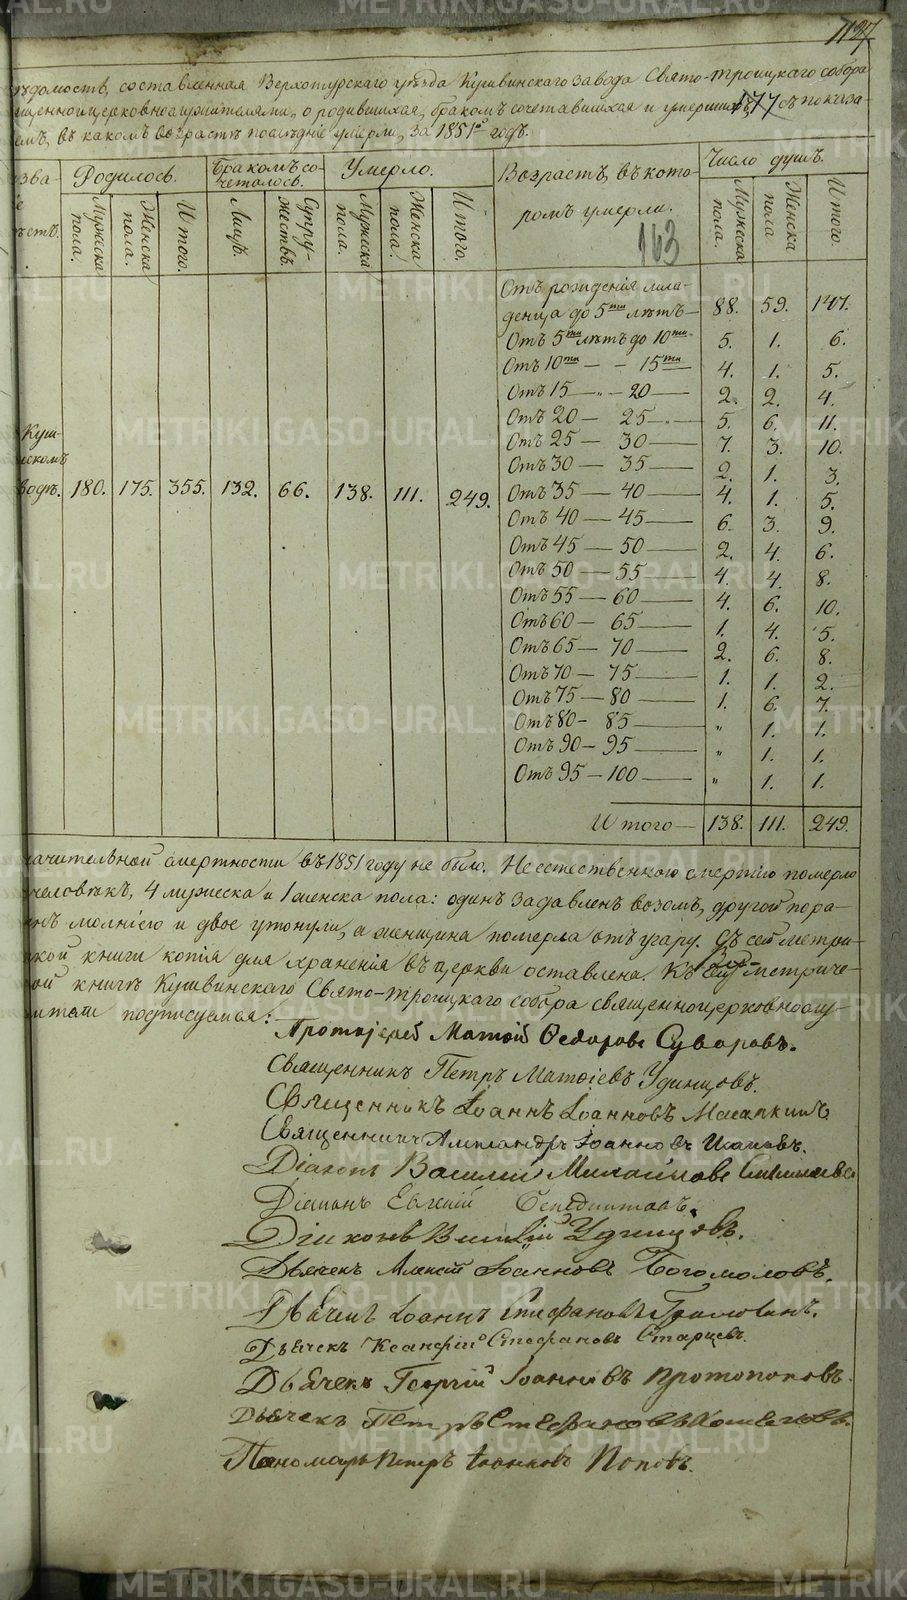 1127
177
ѣдомость, составленная Верхотурскаго уѣзда Кушвинскаго завода Свято-Троицкаго собора
щенноцерковнослужителями, о родившихся, бракомъ сочетавшихся и умершихъ, съ показа-
емъ, въ какомъ возрастѣ послѣдніе умерли, за 1851й годъ.
зва-
іе
Родилось. Бракомъ со-
четалось. Умерло. Возрастъ, въ кото-
ромъ умерли. Число душъ.
Мужеска пола. Женска пола. Итого. Лицъ. Супру-
жествъ. Мужеска пола. Женска пола. Итого. Мужеска пола. Женска пола Итого.
163
Отъ рожденія мла-
денца до 5ти лѣтъ— 88. 59. 147.
Отъ 5ти лѣтъ до 10ти 5. 1. 6.
Отъ 10ти — — 15ти 4. 1. 5.
Отъ 15 — „ — 20 — 2. 2. 4.
Отъ 20 — 25 — 5. 6. 11.
Отъ 25 — 30 — 7. 3. 10.
Отъ 30 — 35 — 2. 1. 3.
Куш-
скомъ
водѣ. 180. 175. 355. 132. 66. 138. 111. 249.
Отъ 35 — 40 — 4. 1. 5.
Отъ 40 — 45 — 6. 3. 9.
Отъ 45 — 50 — 2. 4. 6.
Отъ 50 — 55 — 4. 4. 8.
Отъ 55 — 60 — 4. 6. 10.
Отъ 60 — 65 — 1. 4. 5.
Отъ 65 — 70 — 2. 6. 8.
Отъ 70 — 75 — 1. 1. 2.
Отъ 75 — 80 — 1. 6. 7.
Отъ 80 — 85 — „ 1. 1.
Отъ 90 — 95 — „ 1. 1.
Отъ 95 — 100 — „ 1. 1.
Итого — 138. 111. 249.
начительной смертности въ 1851 году не было. Неестественною смертію померло
человѣкъ, 4 мужеска и 1 женска пола: одинъ задавленъ возомъ, другой пора-
нъ молніею и двое утонули, а женщина померла отъ угару. Съ сей метри-
кой книги копія для храненія въ церкви оставлена. Къ сей метриче-
ой книгѣ Кушвинскаго Свято-Троицкаго собора священноцерковнослу-
ители подписуемся:
Протоіерей Матѳій Ѳедоровъ Суворовъ.
Священникъ Петръ Матѳіевъ Удинцовъ.
Священникъ Іоаннъ Іоанновъ
Священникъ Александръ Іоанновъ
Діаконъ Василій Михайловъ
Діаконъ Евгеній
Діаконъ Василій Удинцовъ.
Дьячекъ Алексій Іоанновъ Богомоловъ.
Дьячекъ Іоаннъ Стефановъ
Дьячекъ Ксанфій Стефановъ Старцевъ.
Дьячекъ Георгій Іоанновъ Протопоповъ.
Дьячекъ Петръ Стефановъ
Пономарь Петръ Іоанновъ Поповъ.
METRIKI.GASO-URAL.RU